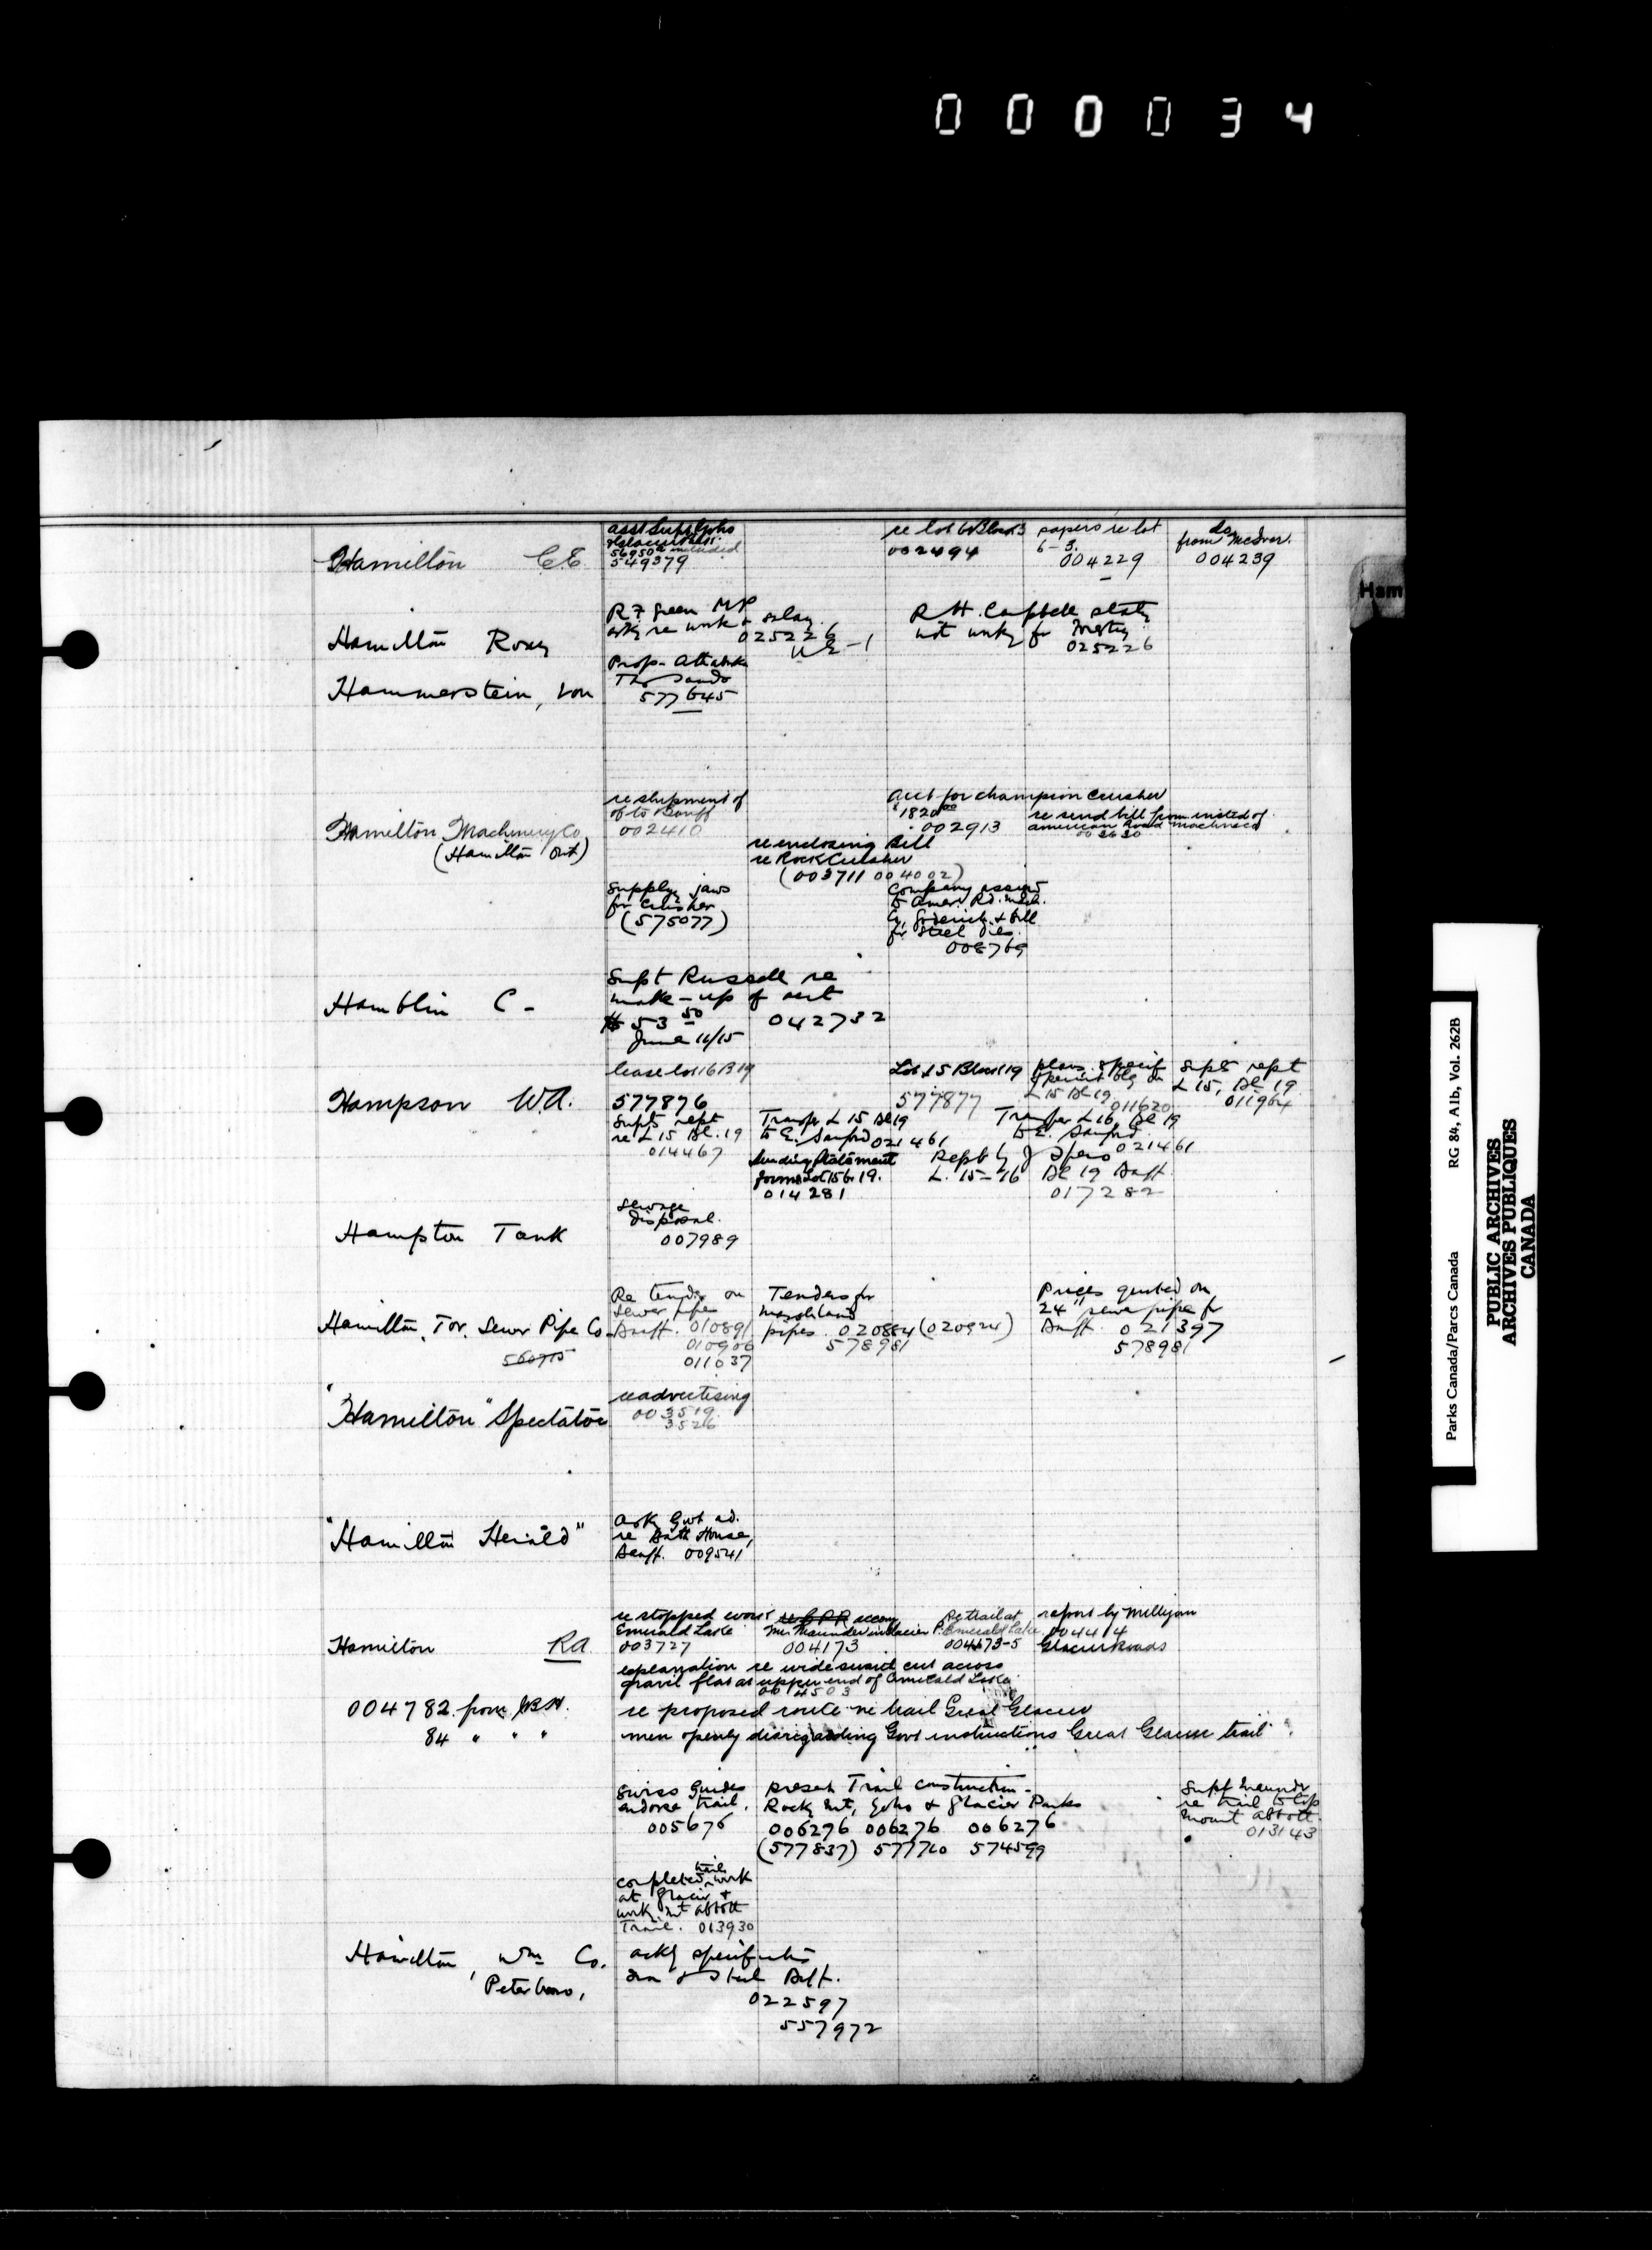 000034
Ham
Hamilton C.E.
asst Supt Yoho
& Glacier Parks
569502 included
549379
re lot 6 Block 3
002494
papers re lot
6-3.
004229
do
from McIver.
004239
Hamilton
R F Green MP
re work & salary
025226
R H. Campbell
not working for Forestry
025226
Hammerstein, von
Tar Sands
577645
Hamilton Machinery Co
(Hamilton Ont)
re shipment of
to Banff
002410
re enclosing Bill
re Rock Crusher
(003711 004002)
acct for champion crusher
$1820.00
002913
re send bill from instead of
american Road machine Co
Supply jaws
for crusher
(575077)
Company assigned
to Amer. Rd. Mch.
Co, Goderich & bill
for steel dies.
008769
Hamblin C-
Supt Russell re
make-up of acct
$53.50
042732
June 11/15
Hampson W.A.
lease lot 16 B 19
577876
Lot 15 Block 19
577877
plans & specif
L 15 Bl 19
011620
Supts rept
L 15, Bl 19
011964
Supts rept
re L 15 Bl. 19
014467
Transfer L 15 Bl 19
to E. Sanford 021461
Transfer L 16, Bl 19
to E. Sanford
021461
sending statement
form Lot 15 b. 19.
014281
Rept by J Spero
L. 15-16 Bl 19 Banff
017282
Hampton Tank
sewage
disposal.
007989
Hamilton, Tor. Sewer Pipe Co.
560775
Re tender on
sewer pipes
Banff. 010891
010900
011037
Tenders for
pipes 020884 (020924)
578981
Prices quoted on
24" sewer pipe for
Banff. 021397
578981
"Hamilton" Spectator
re advertising
003519
3526
"Hamilton Herald"
Ask Govt ad.
re Bath House,
Banff. 009541
Hamilton RA
re stopped work
Emerald Lake
003727
re C.P.R
004173
Re trail at
Emerald Lake
004173-5
report by Milligan
004414
Glacier Roads
explanation re wide swath cut across
gravel flat at upper end of Emerald Lake
004503
004782 from JBH.
84 " " "
re proposed route re trail Great Glacier
men openly disregarding Govt instructions Great Glacier trail
Swiss Guides
endorse trail.
005676
present Trail construction-
Rocky Mt, Yoho & Glacier Parks
006276 006276 006276
(577837) 577710 574599
Supt Maunder
re trail to top
Mount Abbott
013143
completed trail work
at Glacier &
work Mt Abbott
Trail. 013930
Hamilton, Wm Co.
Peterboro,
ackg specification
Iron & Steel Bldg.
022597
557972
Parks Canada/Parcs Canada RG 84, A1b, Vol. 262B
PUBLIC ARCHIVES
ARCHIVES PUBLIQUES
CANADA